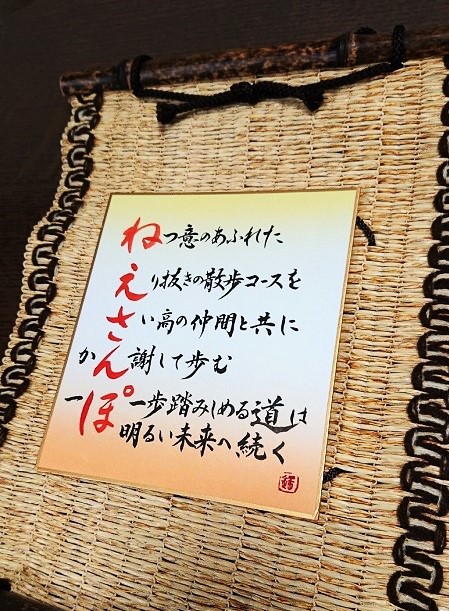 ねつ意のあふれた
えり抜きの散歩コースを
さい高の仲間と共に
かん謝して歩む
一ぽ一歩踏みしめる道は
明るい未来へ続く